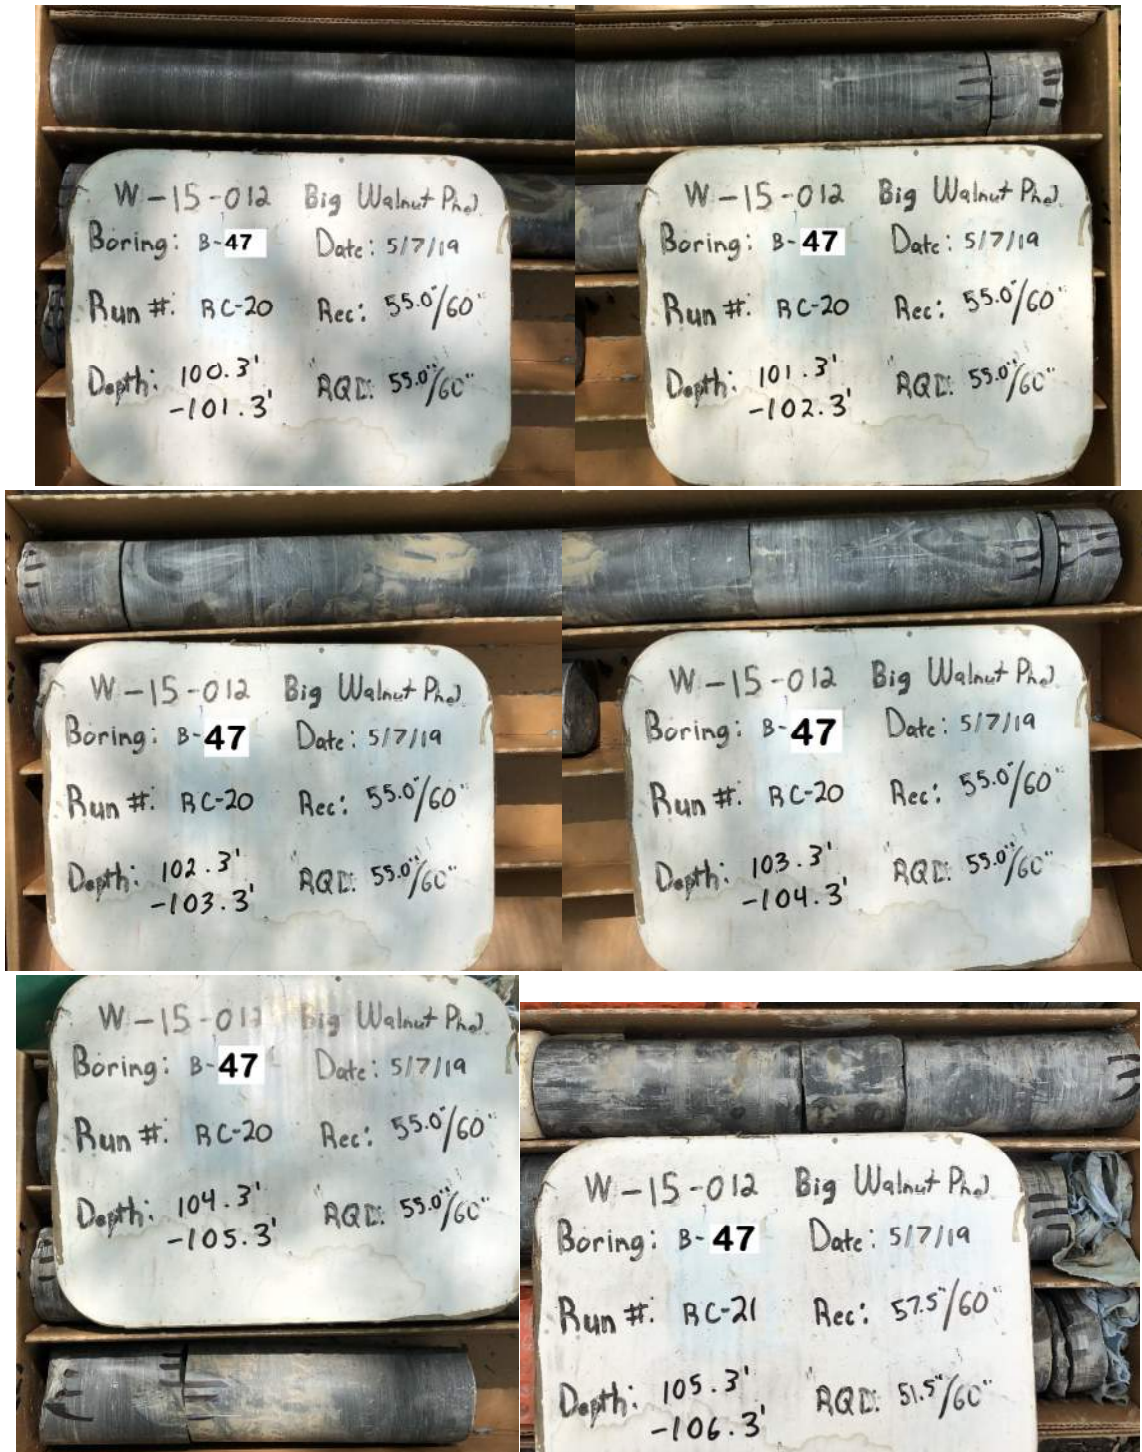 W-15-012 Big Walnut Ph2
Boring: B-47 Date: 5/7/19
Run #: RC-20 Rec: 55.0"/60"
Depth: 100.3' "RQD: 55.0"/60"
-101.3'
W-15-012 Big Walnut Ph2
Boring: B-47 Date: 5/7/19
Run #: RC-20 Rec: 55.0"/60"
Depth: 101.3' "RQD: 55.0"/60"
-102.3'
W-15-012 Big Walnut Ph2
Boring: B-47 Date: 5/7/19
Run #: RC-20 Rec: 55.0"/60"
Depth: 102.3' "RQD: 55.0"/60"
-103.3'
W-15-012 Big Walnut Ph2
Boring: B-47 Date: 5/7/19
Run #: RC-20 Rec: 55.0"/60"
Depth: 103.3' "RQD: 55.0"/60"
-104.3'
W-15-012 Big Walnut Ph2
Boring: B-47 Date: 5/7/19
Run #: RC-20 Rec: 55.0"/60"
Depth: 104.3' "RQD: 55.0"/60"
-105.3'
W-15-012 Big Walnut Ph2
Boring: B-47 Date: 5/7/19
Run #: RC-21 Rec: 57.5"/60"
Depth: 105.3' "RQD: 51.5"/60"
-106.3'